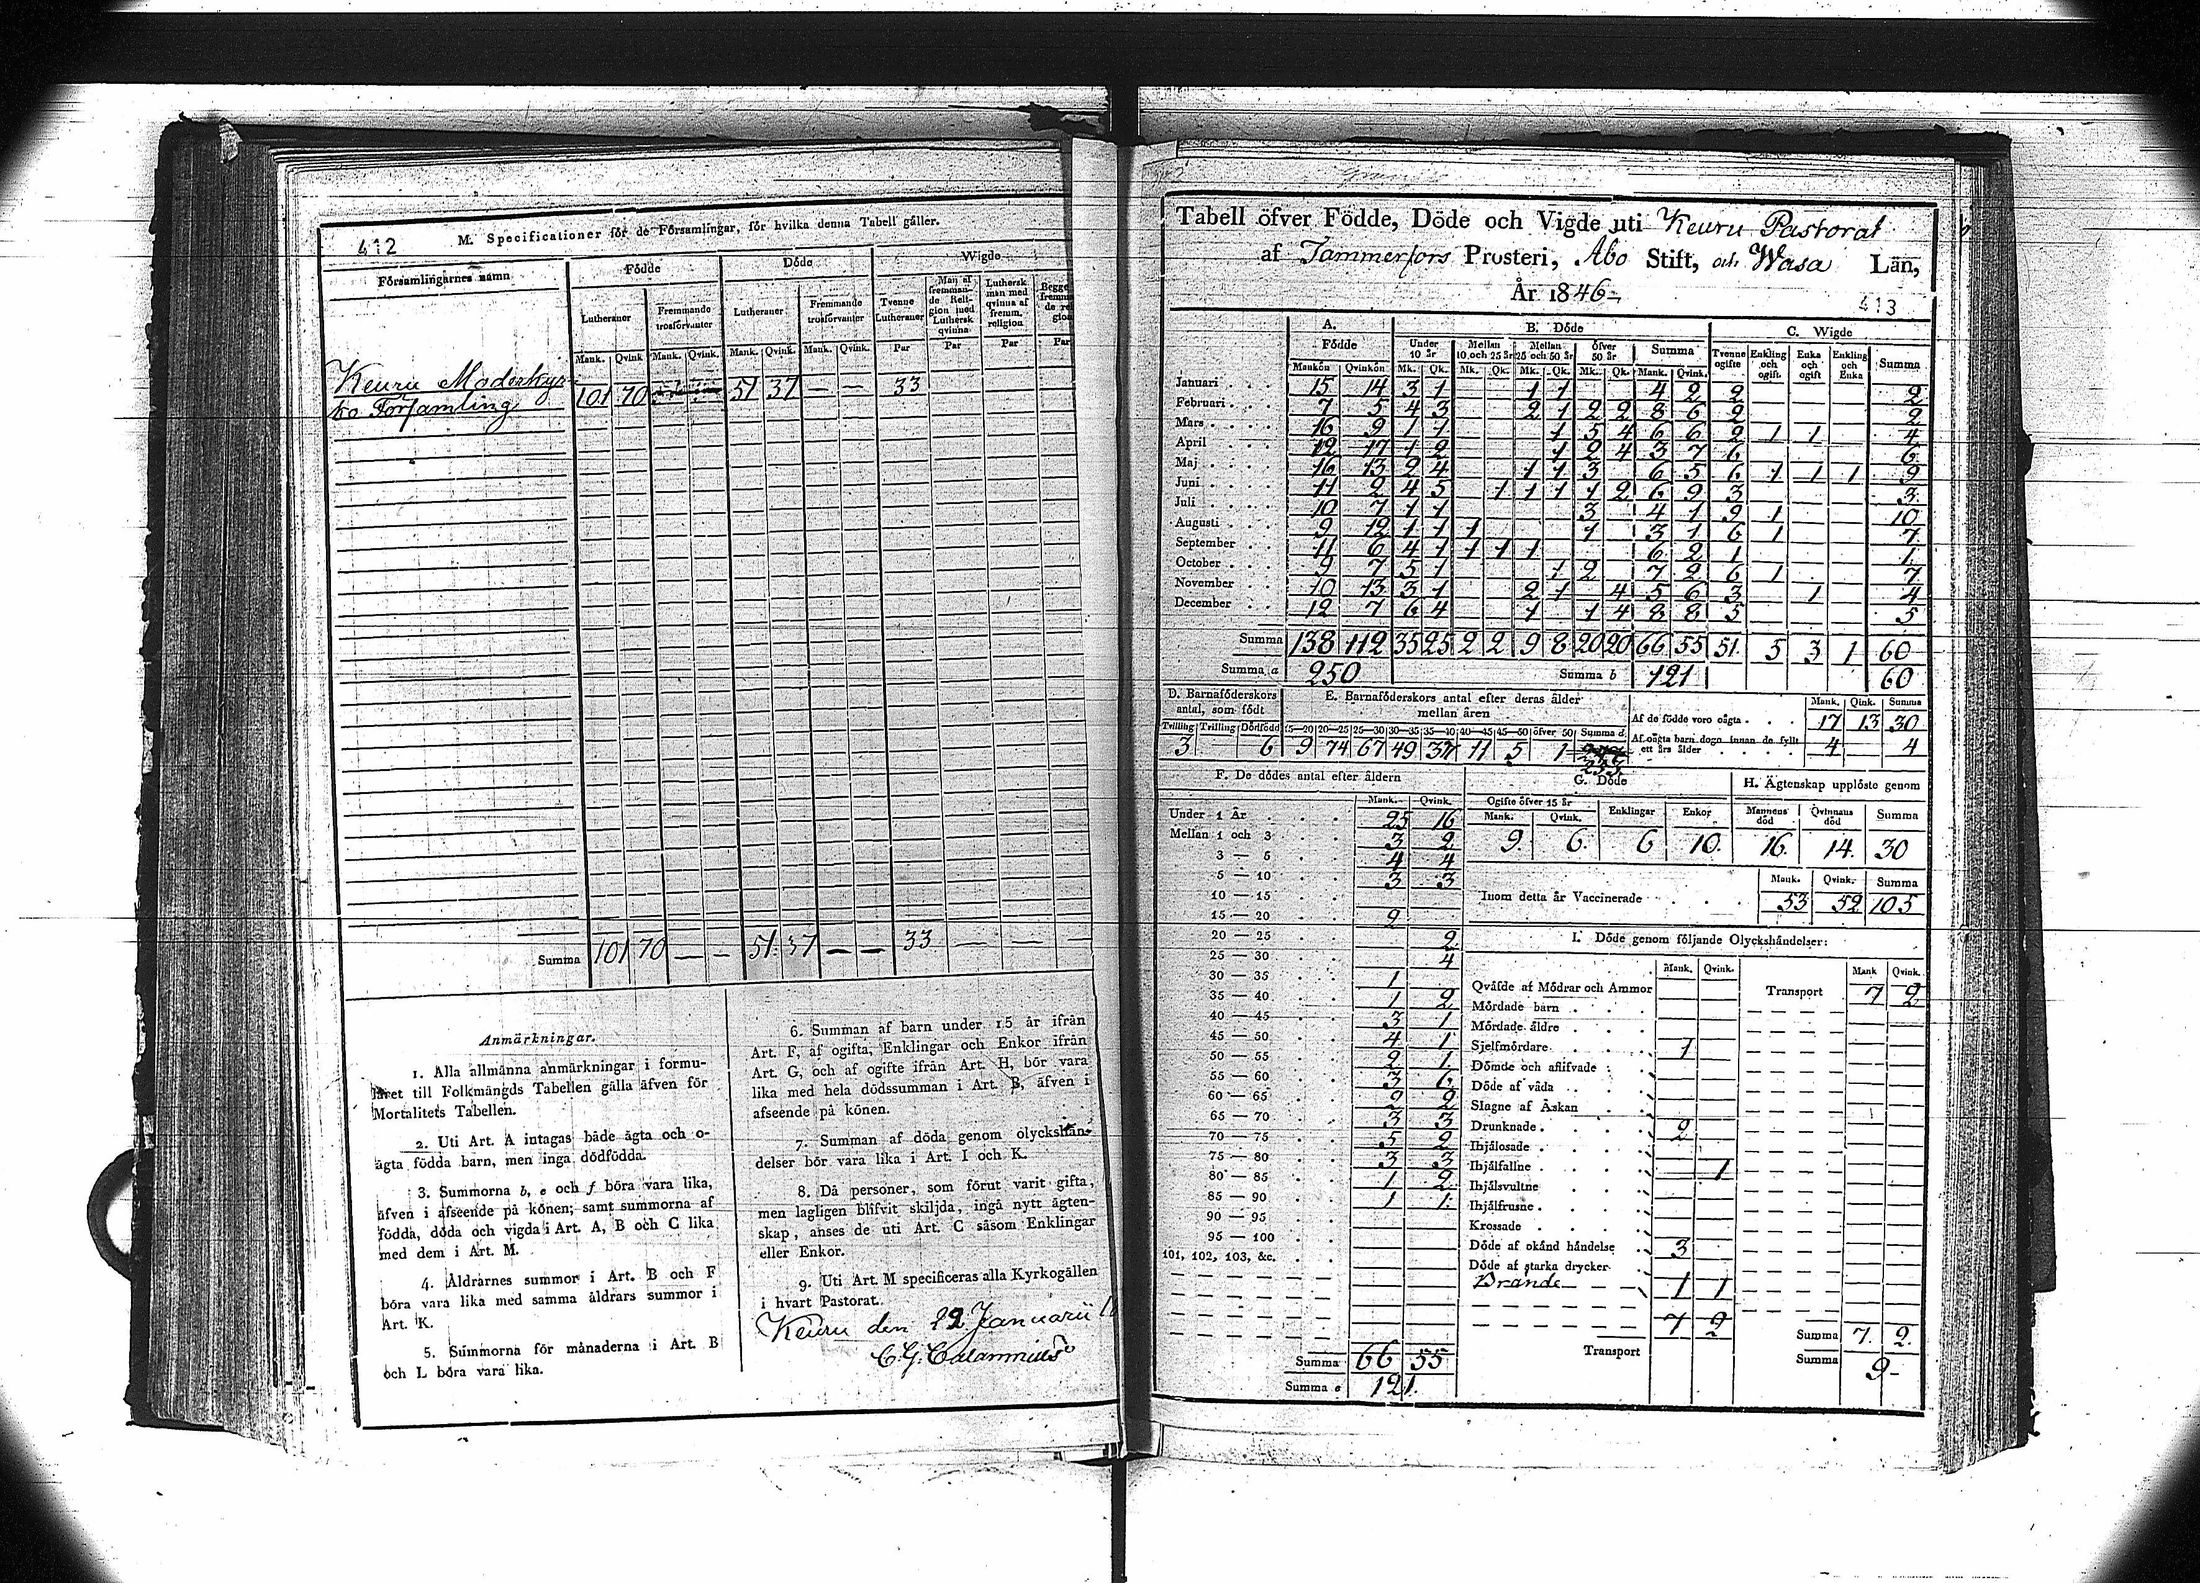 412
M. Specificationer för de Församlingar, för hvilka denna Tabell gäller.
Församlingarnes namn
Födde
Döde
Wigde
Lutheraner
Fremmande trosförvanter
Lutheraner
Fremmande trosförvanter
Tvenne Lutheraner
Man af fremmande Religion med Luthersk qvinna
Luthersk man med qvinna af fremm. religion
Mank. Qvink Mank. Qvink. Mank. Qvink. Mank. Qvink. Par Par Par Par
Keuru Moderkyr-
ko Församling 101 70 51 37 — — 33
Summa 101 70 — — 51 37 — — 33 — — —
Anmärkningar.
1. Alla allmänna anmärkningar i formu-
läret till Folkmängds Tabellen gälla äfven för
Mortalitets Tabellen.
2. Uti Art. A intagas både ägta och o-
ägta födda barn, men inga dödfödda.
3. Summorna b, e och f böra vara lika,
äfven i afseende på könen; samt summorna af
födda, döda och vigda i Art. A, B och C lika
med dem i Art. M.
4. Åldrarnes summor i Art. B och F
böra vara lika med samma åldrars summor i
Art. K.
5. Summorna för månaderna i Art. B
och L böra vara lika.
6. Summan af barn under 15 år ifrån
Art. F, af ogifta, Enklingar och Enkor ifrån
Art. G, och af ogifte ifrån Art. H, bör vara
lika med hela dödssumman i Art. B, äfven i
afseende på könen.
7. Summan af döda genom olyckshän-
delser bör vara lika i Art. I och K.
8. Då personer, som förut varit gifta,
men lagligen blifvit skiljda, ingå nytt ägten-
skap, anses de uti Art. C såsom Enklingar
eller Enkor.
9. Uti Art. M specificeras alla Kyrkogällen
i hvart Pastorat.
Keuru den 22 Januarii
C. G. Calamnius
Tabell öfver Födde, Döde och Vigde uti Keuru Pastorat
af Tammerfors Prosteri, Åbo Stift, och Wasa Län,
År 1846
413
A. Födde
B. Döde
C. Wigde
Under 10 år
Mellan 10 och 25 år
Mellan 25 och 50 år
öfver 50 år
Summa
Tvenne ogifte
Enkling och ogift.
Enka och ogift
Enkling och Enka
Summa
Mankön Qvinkön Mk. Qk. Mk. Qk. Mk. Qk. Mk. Qk. Mank. Qvink.
Januari 15 14 3 1 1 1 4 2 2 2
Februari 7 5 4 3 2 1 2 2 8 6 2 2
Mars 16 9 1 1 1 5 4 6 6 2 1 1 4
April 12 17 1 2 1 2 4 3 7 6 6
Maj 16 13 2 4 1 1 3 6 5 6 1 1 1 9
Juni 11 2 4 5 1 1 1 1 2 6 9 3 3
Juli 10 7 1 1 3 4 1 9 1 10
Augusti 9 12 1 1 1 1 3 1 6 1 7
September 11 6 4 1 1 1 1 6 2 1 1
October 9 7 5 1 1 2 7 2 6 1 7
November 10 13 3 1 2 1 4 5 6 3 1 4
December 12 7 6 4 1 1 4 8 8 5 5
Summa 138 112 35 25 2 2 9 8 20 20 66 55 51 5 3 1 60
Summa a 250 Summa b 121 60
D. Barnaföderskors antal, som födt
Tvilling Trilling Dödfödd
3 — 6
E. Barnaföderskors antal efter deras ålder mellan åren
15—20 20—25 25—30 30—35 35—40 40—45 45—50 öfver 50 Summa d.
9 74 67 49 37 11 5 1 253
Mank. Qink. Summa
Af de födde voro oägta 17 13 30
Af oägta barn dogo innan de fyllt
ett års ålder 4 4
F. De dödes antal efter åldern
Mank. Qvink.
Under 1 År 25 16
Mellan 1 och 3 3 2
3 — 5 4 4
5 — 10 3 3
10 — 15
15 — 20 2
20 — 25 2
25 — 30 4
30 — 35 1
35 — 40 1 2
40 — 45 3 1
45 — 50 4 1
50 — 55 2 1
55 — 60 3 6
60 — 65 2 2
65 — 70 3 3
70 — 75 5 2
75 — 80 3 3
80 — 85 1 2
85 — 90 1 1
90 — 95
95 — 100
101, 102, 103, &c.
Summa 66 55
Summa e 121.
G. Döde
Ogifte öfver 15 år Enklingar Enkor
Mank. Qvink.
9. 6. 6 10.
H. Ägtenskap upplöste genom
Mannens död Qvinnans död Summa
16. 14. 30
Mank. Qvink. Summa
Inom detta år Vaccinerade 53 52 105
I. Döde genom följande Olyckshändelser:
Mank. Qvink. Mank Qvink.
Qväfde af Mödrar och Ammor Transport 7 2
Mördade barn
Mördade äldre
Sjelfmördare 1
Dömde och aflifvade
Döde af våda
Slagne af Åskan
Drunknade 2
Ihjälosade
Ihjälfallne 1
Ihjälsvultne
Ihjälfrusne
Krossade
Döde af okänd händelse 3
Döde af starka drycker
Brände 1 1
7 2
Transport
Summa 7. 2.
Summa 9-